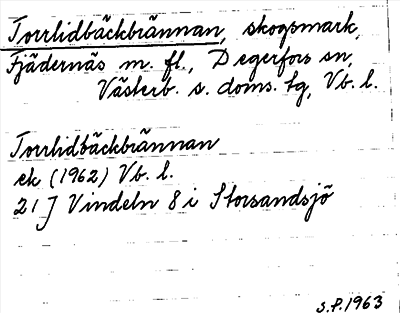 Torrlidbäckbrännan, skogsmark,
Fjädernäs m. fl., Degerfors sn,
Västerb. s. doms. tg, Vb. l.
Torrlidbäckbrännan
ek (1962) Vb. l.
21J Vindeln 8 i Storsandsjö
S.P. 1963